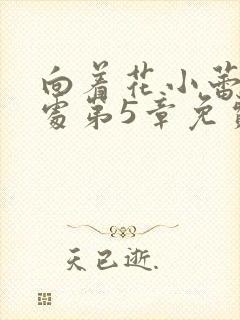 向着花小蕾
处第5章免费
天已逝.